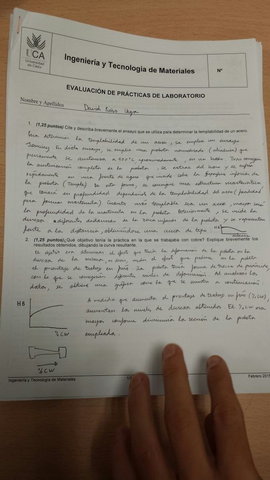 UCA
Universidad
de Cádiz
Ingeniería y Tecnología de Materiales
Nº
EVALUACIÓN DE PRÁCTICAS DE LABORATORIO
Nombre y Apellidos David
1. (1,25 puntos) Cite y describa brevemente el ensayo que se utiliza para determinar la templabilidad de un acero.
Para determinar la templabilidad de un acero, se emplea un ensayo
Jominy. En este ensayo, se emplea una probeta normalizada (cilíndrica) que
previamente se austeniza a
la austenización completa en la probeta, se extrae del horno y se
rápidamente en una fuente de agua que incide sobre la superficie inferior de
la probeta (temple). De esta forma, se consigue una estructura martensítica
que tendrá su profundidad dependiente de la templabilidad del acero (facilidad
para formar martensita). Cuanto más templable sea un acero, mayor será
la profundidad de la martensita en la probeta. Posteriormente, se mide la
dureza a diferentes distancias de la zona inferior de la probeta y se representa
frente a la distancia, obteniéndose una curva de tipo
2. (1,25 puntos) ¿Qué objetivo tenía la práctica en la que se trabajaba con cobre? Explique brevemente los
resultados obtenidos, dibujando la curva resultante.
El objetivo era determinar el efecto que tenía la deformación de la probeta en la
dureza de la misma, es decir, medir el efecto que tenía en la probeta
el porcentaje de trabajo en frío. La probeta tenía forma de
con lo que se consiguen diferentes niveles de deformación. Al analizar los
datos, se obtiene una gráfica como la que se muestra a continuación
HB
%CW
A medida que aumenta el porcentaje de trabajo en frío (%CW),
aumentan los niveles de dureza obtenidos. El %CW era
mayor conforme disminuía la sección de la probeta
empleada.
%CW
Ingeniería y Tecnología de Materiales
Febrero